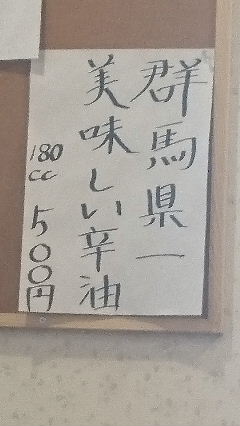 群馬県一
美味しい辛油
180cc 500円